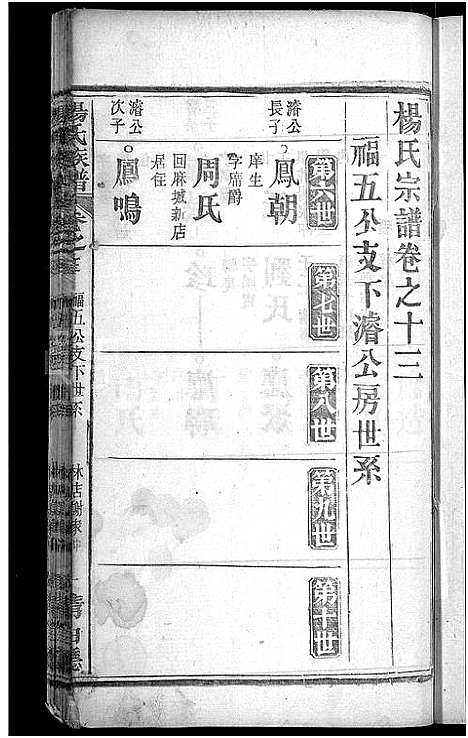 楊氏宗譜卷之十三
福五公支下濬公房世系
第六世
第七世
第八世
第九世
第十世
濬公長子
鳳朝
庠生
字席爵
周氏
回麻城新店
居住
濬公次子
鳳鳴
楊氏族譜
卷之十三
福五公支下世系